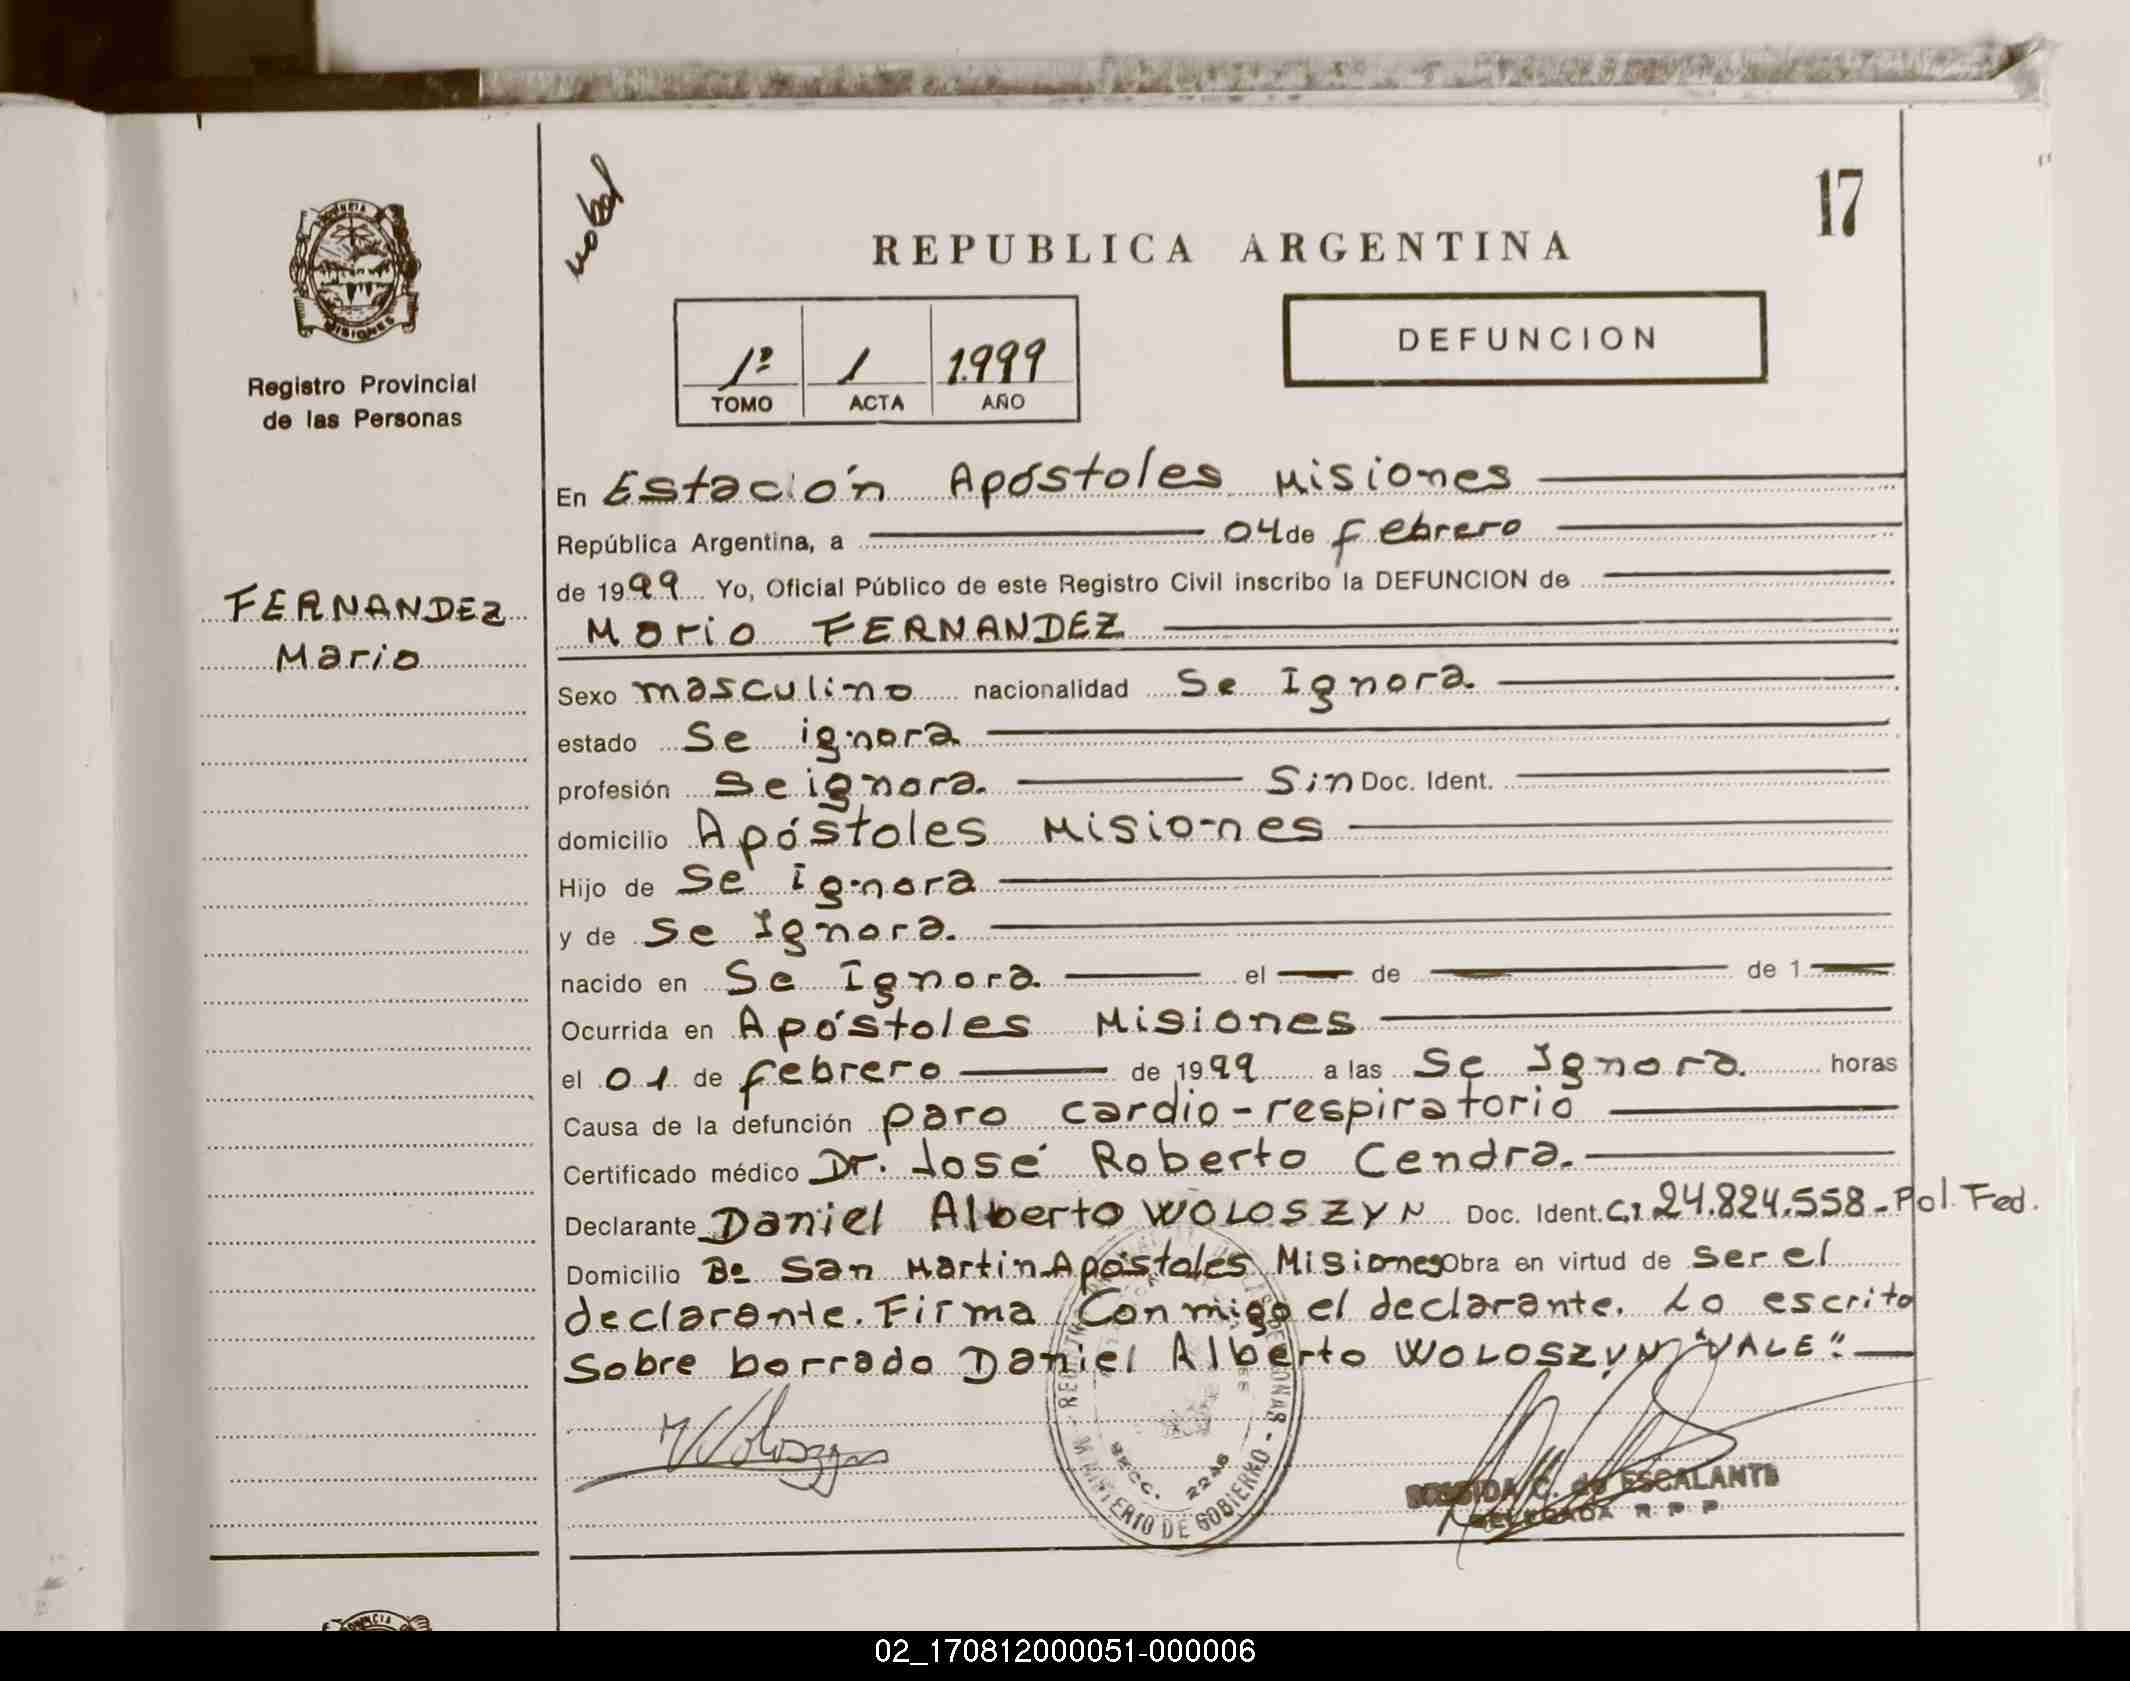 17
REPUBLICA ARGENTINA
PROVINCIA
MISIONES
Registro Provincial
de las Personas
1º 1 1.999
TOMO ACTA AÑO
DEFUNCION
FERNANDEZ
Mario
En Estación Apóstoles Misiones
República Argentina, a 04 de febrero
de 1999 Yo, Oficial Público de este Registro Civil inscribo la DEFUNCION de
Mario FERNANDEZ
Sexo masculino nacionalidad Se Ignora.
estado Se ignora
profesión Se ignora. Sin Doc. Ident.
domicilio Apóstoles Misiones
Hijo de Se ignora
y de Se Ignora.
nacido en Se Ignora. el de de 1
Ocurrida en Apóstoles Misiones
el 01 de febrero de 1999 a las Se Ignora. horas
Causa de la defunción paro cardio-respiratorio
Certificado médico Dr. José Roberto Cendra.
Declarante Daniel Alberto WOLOSZYN Doc. Ident. C.I. 24.824.558-Pol. Fed.
Domicilio Bº San Martin Apóstoles Misiones Obra en virtud de ser el
declarante. Firma Conmigo el declarante. Lo escrito
Sobre borrado Daniel Alberto WOLOSZYN "VALE".
Woloszyn
SECC. 2246
MINISTERIO DE GOBIERNO
C. de ESCALANTE
DELEGADA R. P. P.
02_170812000051-000006